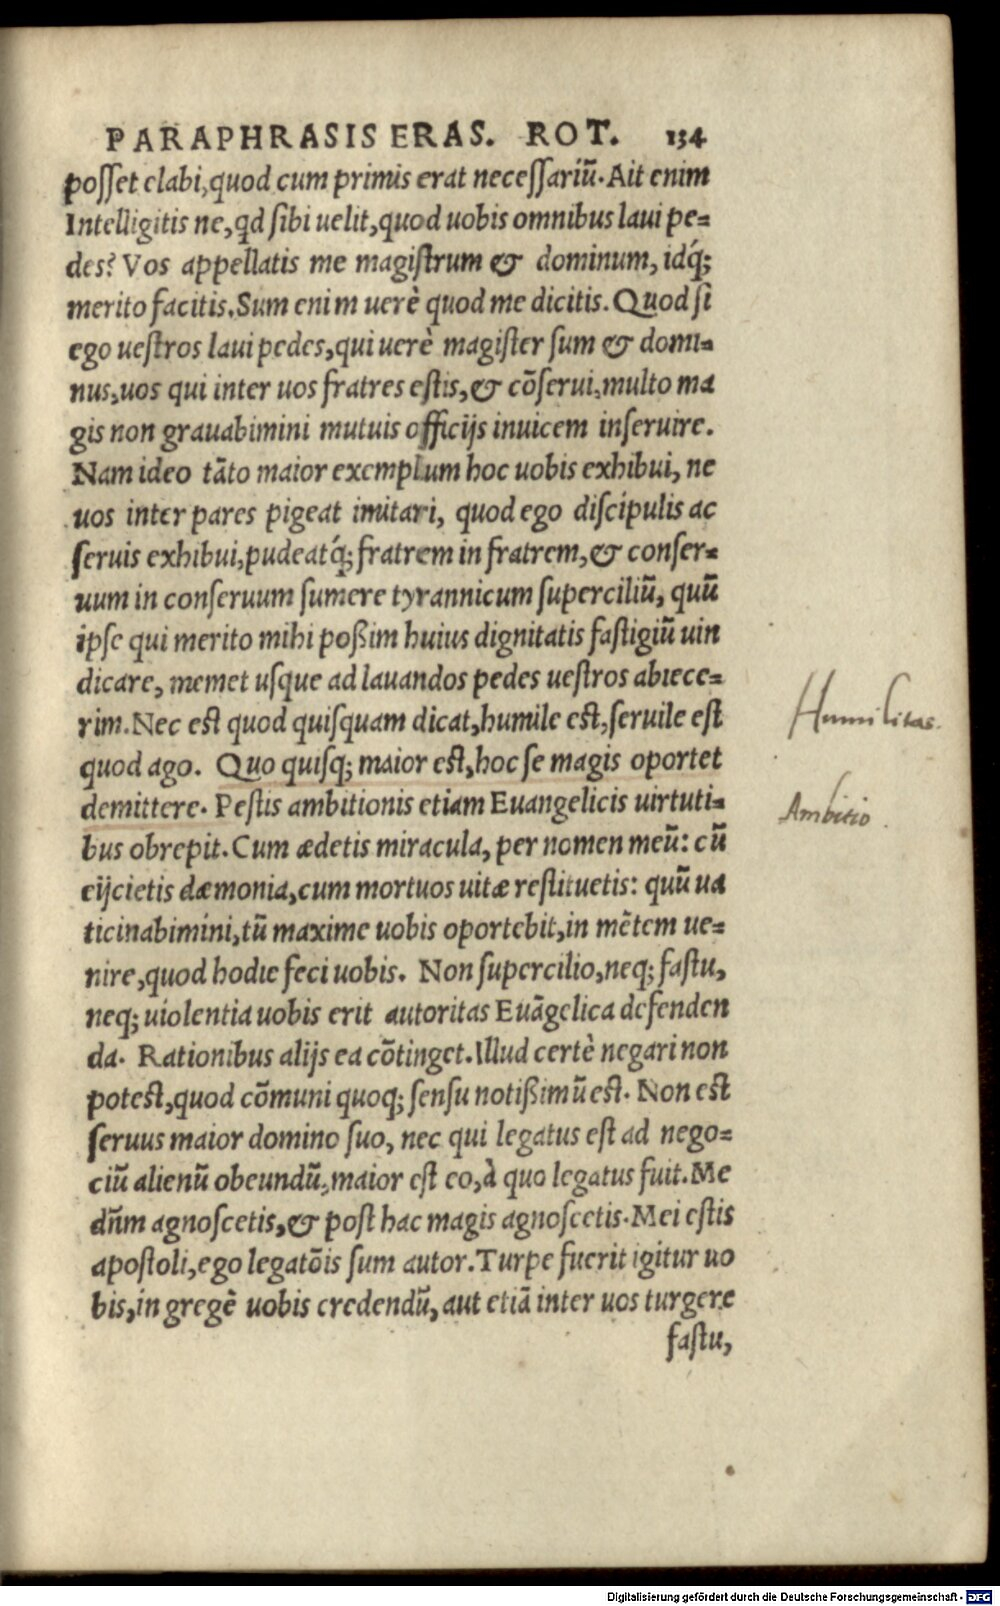 PARAPHRASIS ERAS. ROT. 134
posſet elabi, quod cum primis erat neceſſariũ. Ait enim
Intelligitis ne, qd ſibi uelit, quod uobis omnibus laui pe=
des? Vos appellatis me magiſtrum & dominum, idq́;
merito facitis. Sum enim uerè quod me dicitis. Quod ſi
ego ueſtros laui pedes, qui uerè magiſter ſum & domi=
nus, uos qui inter uos fratres eſtis, & cõſerui, multo ma
gis non grauabimini mutuis officijs inuicem inſeruire.
Nam ideo tãto maior exemplum hoc uobis exhibui, ne
uos inter pares pigeat imitari, quod ego diſcipulis ac
ſeruis exhibui, pudeatq́; fratrem in fratrem, & conſer=
uum in conſeruum ſumere tyrannicum ſuperciliũ, quũ
ipſe qui merito mihi poßim huius dignitatis faſtigiũ uin
dicare, memet uſque ad lauandos pedes ueſtros abiece=
rim. Nec eſt quod quiſquam dicat, humile eſt, ſeruile eſt
quod ago. Quo quiſq; maior eſt, hoc ſe magis oportet
demittere. Peſtis ambitionis etiam Euangelicis uirtuti=
bus obrepit. Cum ædetis miracula, per nomen meũ: cũ
eijcietis dæmonia, cum mortuos uitæ reſtituetis: quũ ua
ticinabimini, tũ maxime uobis oportebit, in mẽtem ue=
nire, quod hodie feci uobis. Non ſupercilio, neq; faſtu,
neq; uiolentia uobis erit autoritas Euãgelica defenden
da. Rationibus alijs ea cõtinget. Illud certè negari non
poteſt, quod cõmuni quoq; ſenſu notißimũ eſt. Non eſt
ſeruus maior domino ſuo, nec qui legatus eſt ad nego=
ciũ alienũ obeundũ, maior eſt eo, à quo legatus fuit. Me
dñm agnoſcetis, & poſt hac magis agnoſcetis. Mei eſtis
apoſtoli, ego legatõis ſum autor. Turpe fuerit igitur uo
bis, in gregẽ uobis credendũ, aut etiã inter uos turgere
faſtu,
Humilitas.
Ambitio.
Digitalisierung gefördert durch die Deutsche Forschungsgemeinschaft - DFG